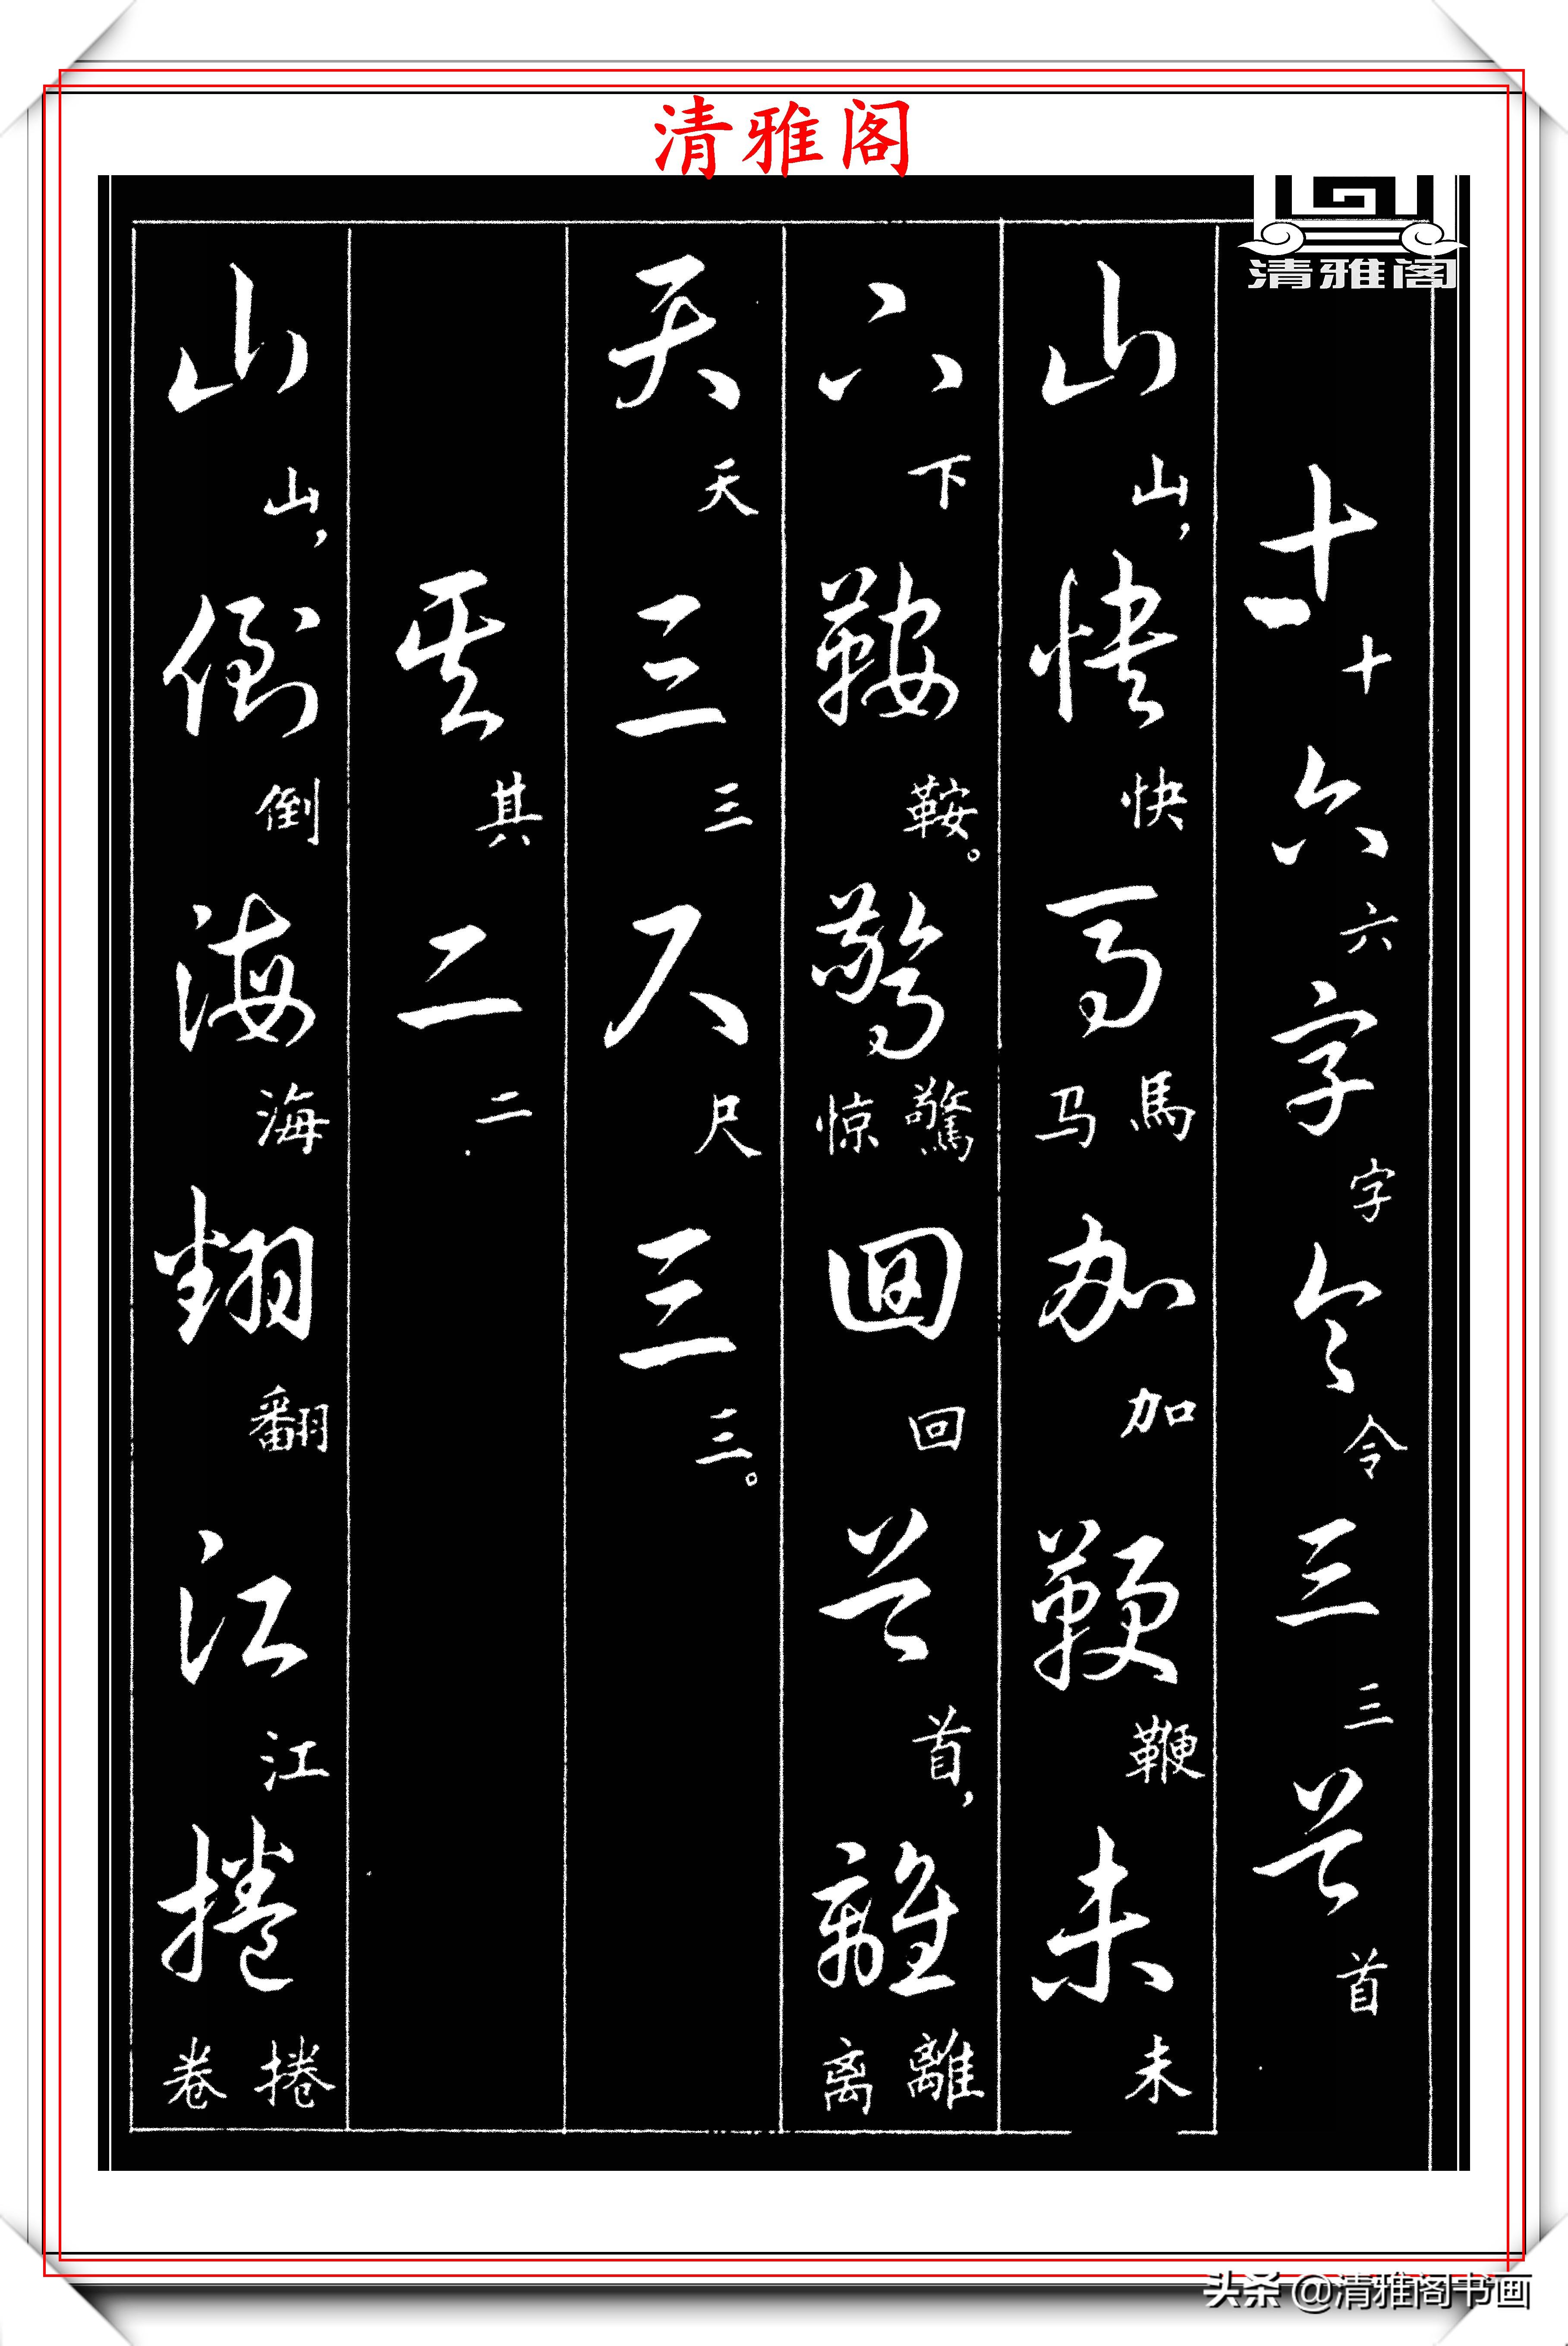 清雅阁
清雅阁
十十六六字字令令三三首首
山山，快快馬馬马加加鞭鞭未未
下下鞍鞍。驚驚惊回回首首，離離离
天天三三尺尺三三。
其其二二
山山，倒倒海海翻翻江江捲捲卷
头条 @清雅阁书画